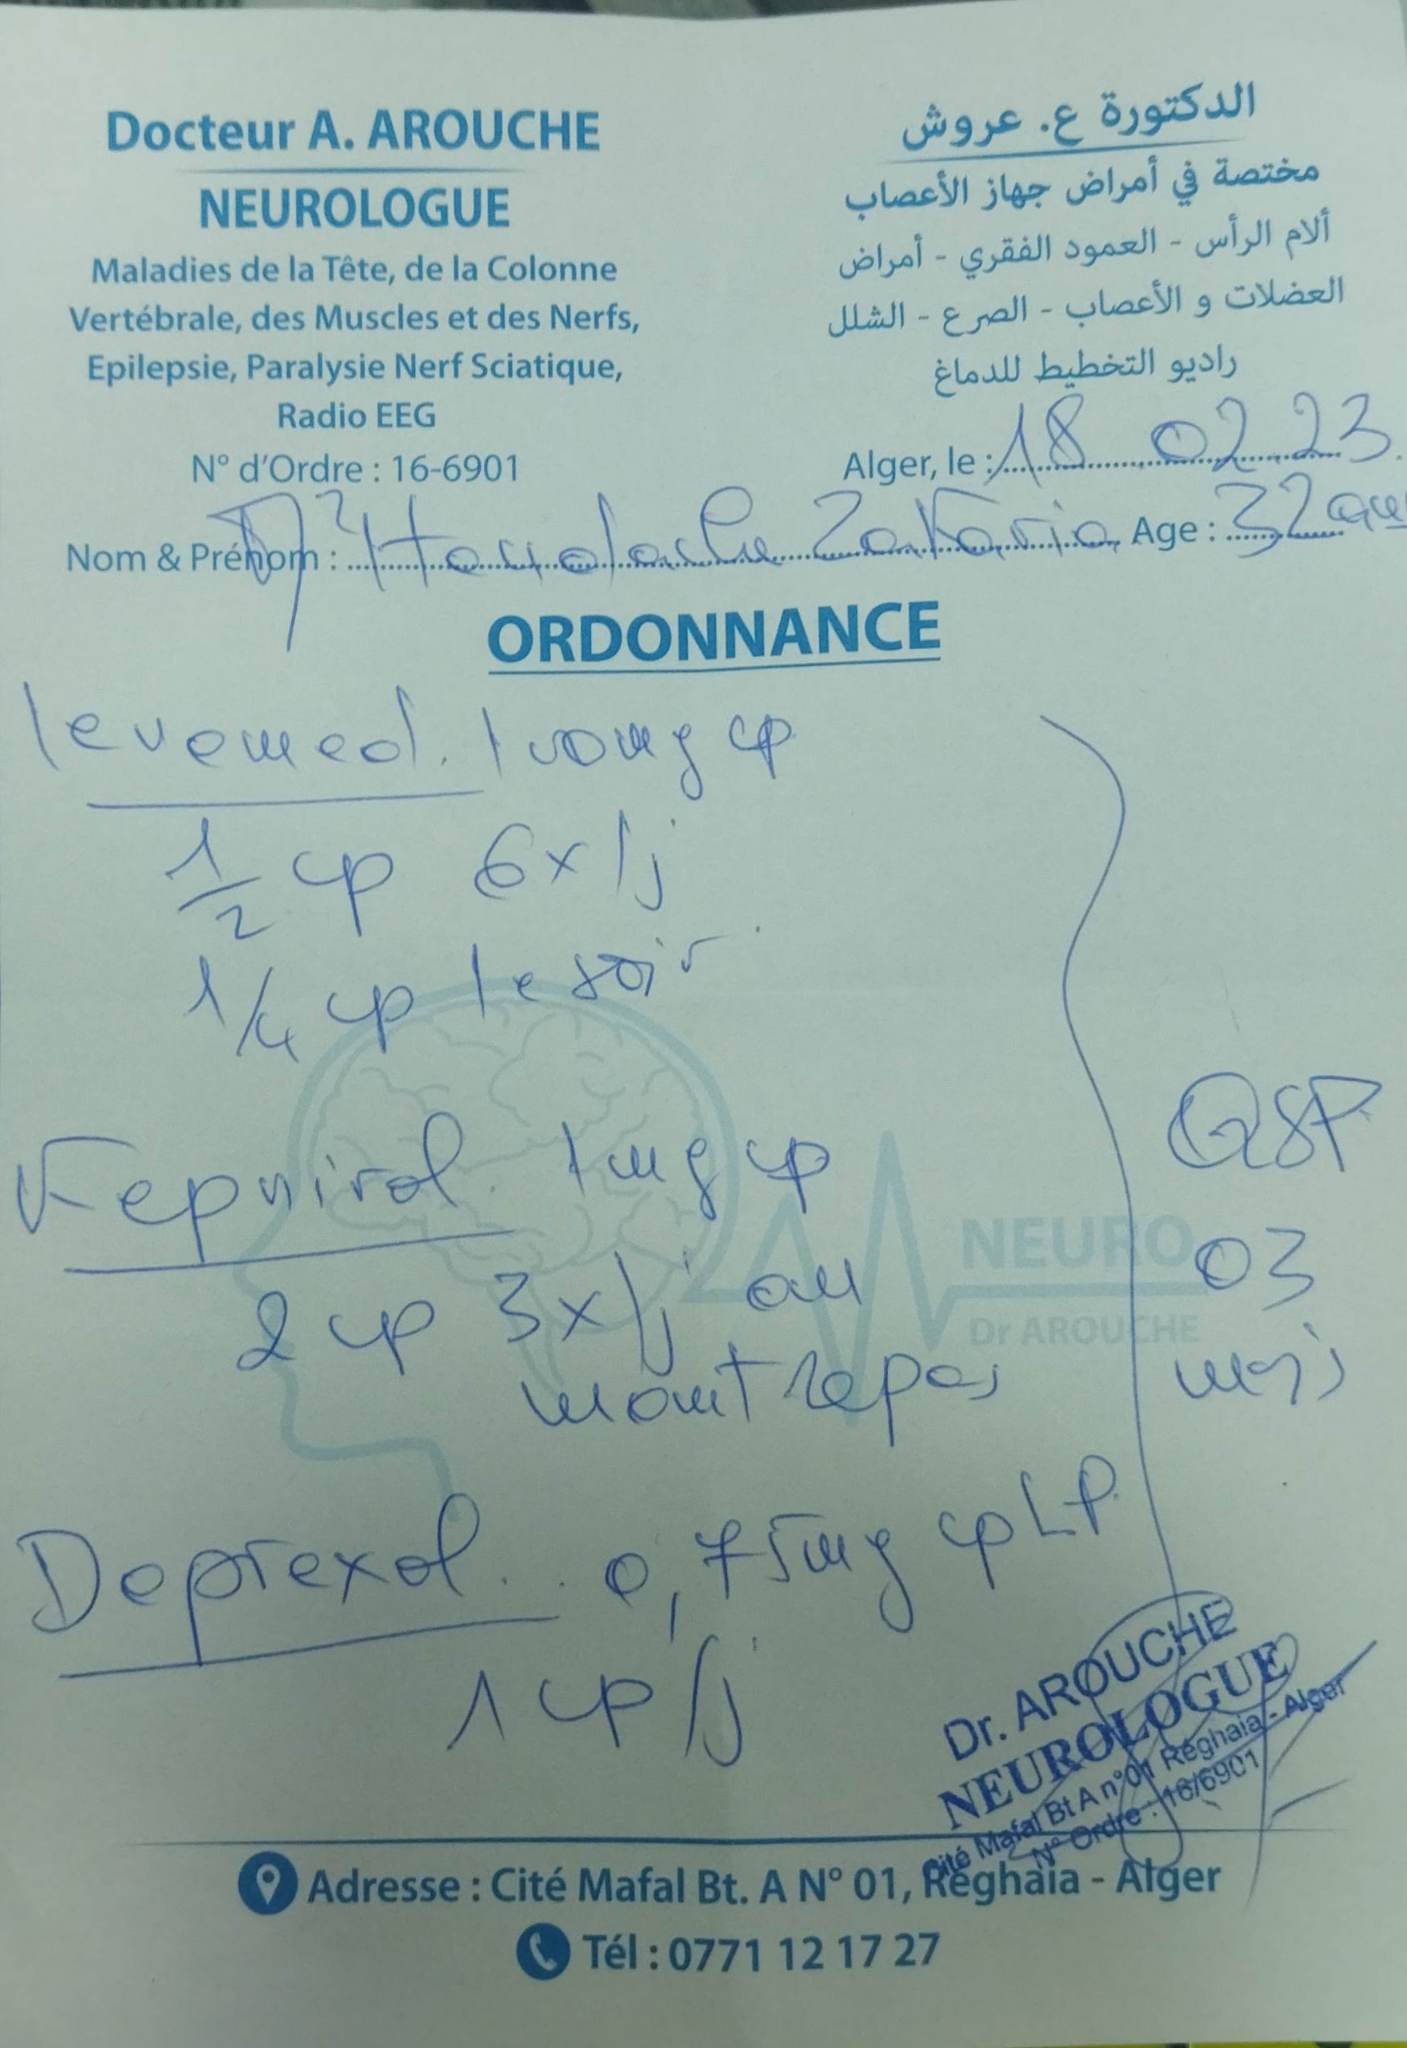 Docteur A. AROUCHE
NEUROLOGUE
Maladies de la Tête, de la Colonne
Vertébrale, des Muscles et des Nerfs,
Epilepsie, Paralysie Nerf Sciatique,
Radio EEG
N° d'Ordre : 16-6901
الدكتورة ع. عروش
مختصة في أمراض جهاز الأعصاب
ألام الرأس - العمود الفقري - أمراض
العضلات و الأعصاب - الصرع - الشلل
راديو التخطيط للدماغ
Alger, le : 18 02 23
Nom & Prénom : Zakaria Age : 32 ans
ORDONNANCE
levomed. cp
1/2 cp 6x/j
1/4 cp le soir
1mg cp
2 cp 3x/j au
momt repas
QSP
03
mois
NEURO
Dr AROUCHE
0,75mg cp LP
1 cp/j
Dr. AROUCHE
NEUROLOGUE
Cité Mafal Bt A n°01 Réghaia - Alger
N° Ordre : 16/6901
Adresse : Cité Mafal Bt. A N° 01, Réghaïa - Alger
Tél : 0771 12 17 27